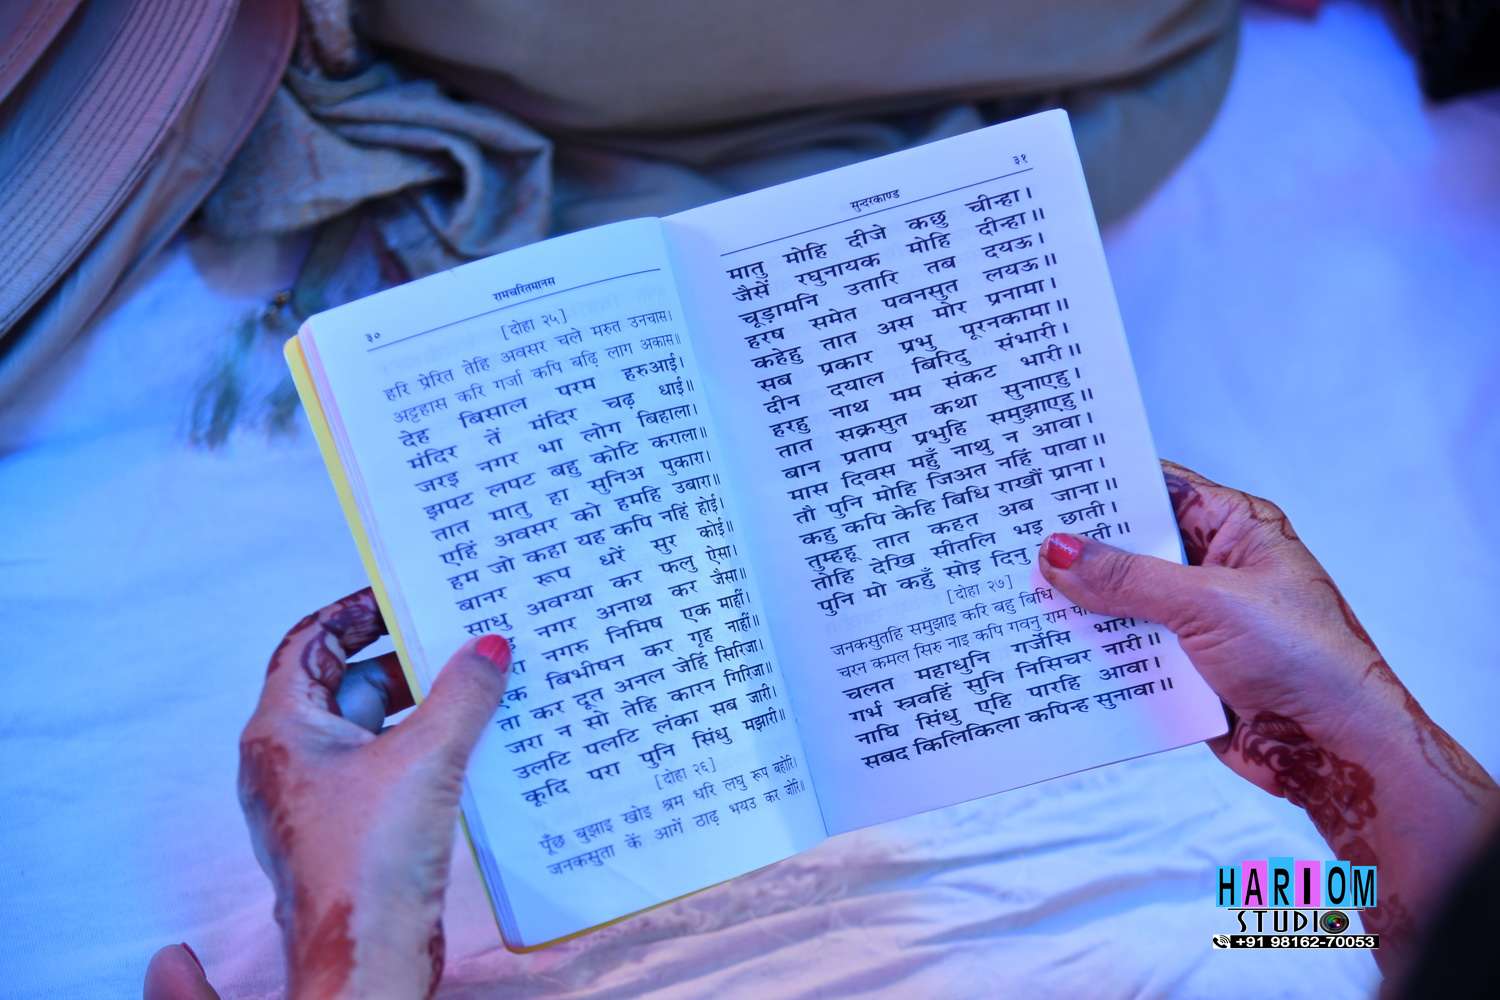 रामचरितमानस
३०
[दोहा २५]
हरि प्रेरित तेहि अवसर चले मरुत उनचास।
अट्टहास करि गर्जा कपि बढ़ि लाग अकास॥
देह बिसाल परम हरुआई।
मंदिर तें मंदिर चढ़ धाई॥
जरइ नगर भा लोग बिहाला।
झपट लपट बहु कोटि कराला॥
तात मातु हा सुनिअ पुकारा।
एहिं अवसर को हमहि उबारा॥
हम जो कहा यह कपि नहिं होई।
बानर रूप धरें सुर कोई॥
साधु अवग्या कर फलु ऐसा।
नगर अनाथ कर जैसा॥
नगरु निमिष एक माहीं।
एक बिभीषन कर गृह नाहीं॥
ता कर दूत अनल जेहिं सिरिजा।
जरा न सो तेहि कारन गिरिजा॥
उलटि पलटि लंका सब जारी।
कूदि परा पुनि सिंधु मझारी॥
[दोहा २६]
पूँछ बुझाइ खोइ श्रम धरि लघु रूप बहोरि।
जनकसुता कें आगें ठाढ़ भयउ कर जोरि॥
सुन्दरकाण्ड
३१
मातु मोहि दीजे कछु चीन्हा।
जैसें रघुनायक मोहि दीन्हा॥
चूड़ामनि उतारि तब दयऊ।
हरष समेत पवनसुत लयऊ॥
कहेहु तात अस मोर प्रनामा।
सब प्रकार प्रभु पूरनकामा॥
दीन दयाल बिरिदु संभारी।
हरहु नाथ मम संकट भारी॥
तात सक्रसुत कथा सुनाएहु।
बान प्रताप प्रभुहि समुझाएहु॥
मास दिवस महुँ नाथु न आवा।
तौ पुनि मोहि जिअत नहिं पावा॥
कहु कपि केहि बिधि राखौं प्राना।
तुम्हहू तात कहत अब जाना॥
तोहि देखि सीतलि भइ छाती।
पुनि मो कहुँ सोइ दिनु
[दोहा २७]
जनकसुतहि समुझाइ करि बहु बिधि
चरन कमल सिरु नाइ कपि गवनु राम
चलत महाधुनि गर्जेसि भारी।
गर्भ स्त्रवहिं सुनि निसिचर नारी॥
नाघि सिंधु एहि पारहि आवा।
सबद किलिकिला कपिन्ह सुनावा॥
HARIOM
STUDIO
+91 98162-70053